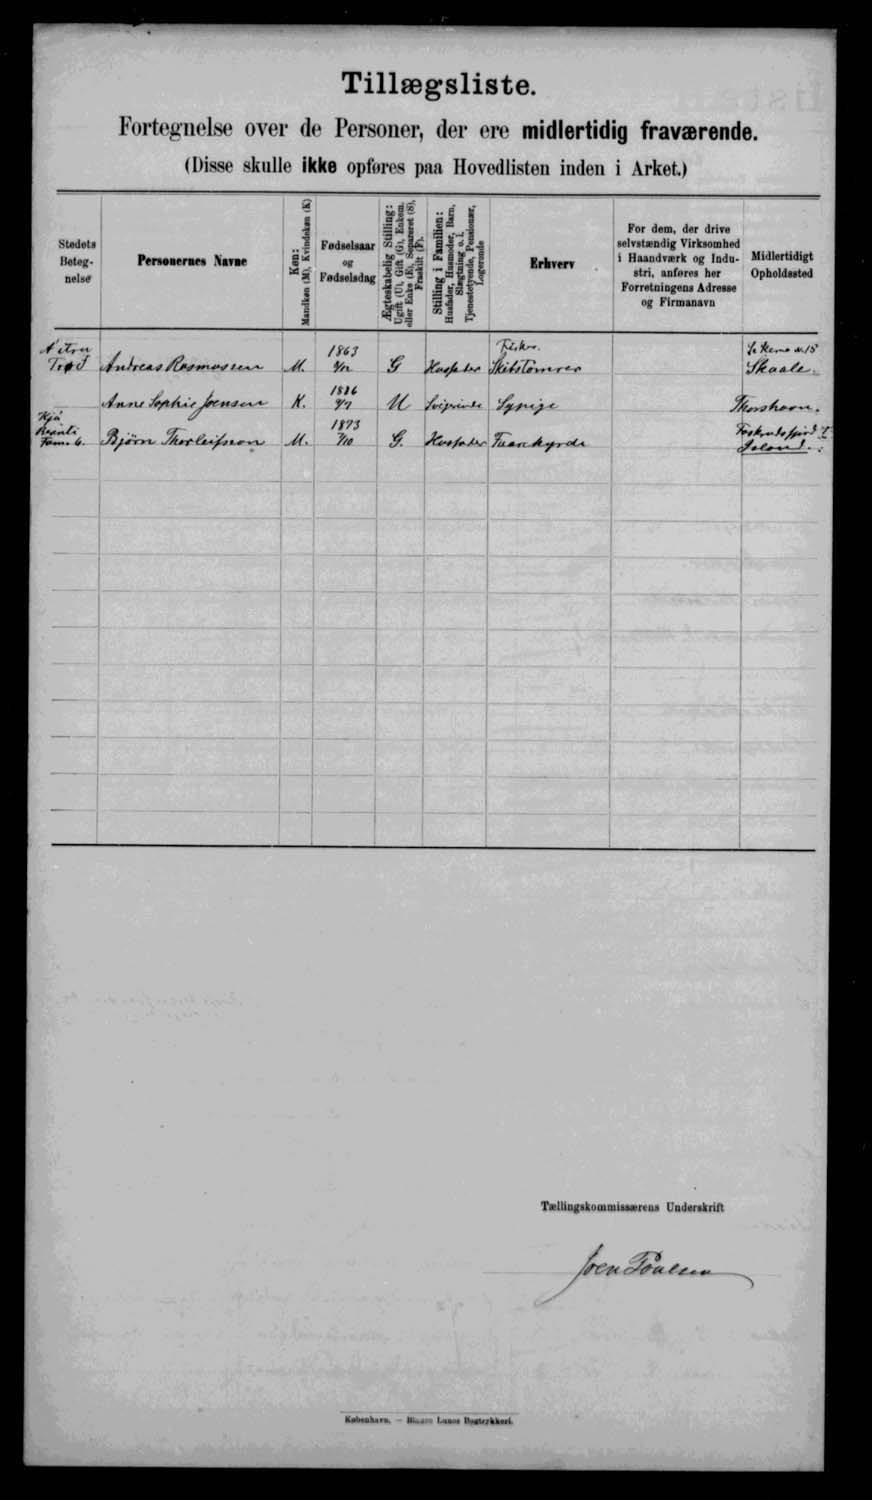 Tillægsliste.
Fortegnelse over de Personer, der ere midlertidig fraværende.
(Disse skulle ikke opføres paa Hovedlisten inden i Arket.)
Stedets Beteg-nelse
Personernes Navne
Køn: Mandkøn (M), Kvindekøn (K)
Fødselsaar og Fødselsdag
Ægteskabelig Stilling: Ugift (U), Gift (G), Enkem. eller Enke (E), Separeret (S), Fraskilt (F).
Stilling i Familien: Husfader, Husmoder, Barn, Slægtning o. l. Tjenestetyende, Pensionær, Logerende
Erhverv
For dem, der drive selvstændig Virksomhed i Haandværk og Indu-stri, anføres her Forretningens Adresse og Firmanavn
Midlertidigt Opholdssted
Andreas Rasmussen M. 1863 G Husfader Skibstømrer Skaale.
Anne Sophie Joensen K. 1886 U Sypige Thorshavn.
Bjørn Thorleifsson M. 1873 7/10 G. Husfader Faarehyrde Island.
Tællingskommissærens Underskrift
Joen Poulsen
København. — Bianco Lunos Bogtrykkeri.